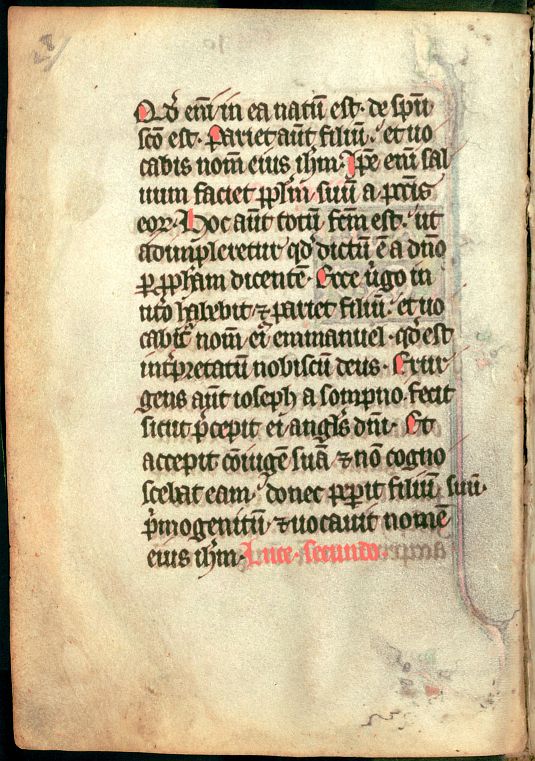 Qd̄ em̄ in ea natū est· de spū
scō est· Pariet aūt filiū· et uo
cabis nom̄ eius ihm̄· Ip̄e em̄ sal
uum faciet pplm̄ suū a pctīs
eoꝝ· Hoc aūt totū fcm̄ est· ut
adimpleretur qd̄ dictū ē a dn̄o
ꝑ ꝓpham dicentē· Ecce ūgo in
utˀo habebit ⁊ pariet filiū· et uo
cabitˀ nom̄ eiˀ emmanuel· qd̄ est
intˀpretatū nobiscū deus· Exur
gens aūt ioseph a sompno· fecit
sicut p̄cepit ei anglˀs dn̄i· Et
accepit cōiugē suā ⁊ nō cogno
scebat eam· donec peꝑit filiū suū·
p̄mogenitū· ⁊ uocauit nomē
eius ihm̄· Luce· secundo·